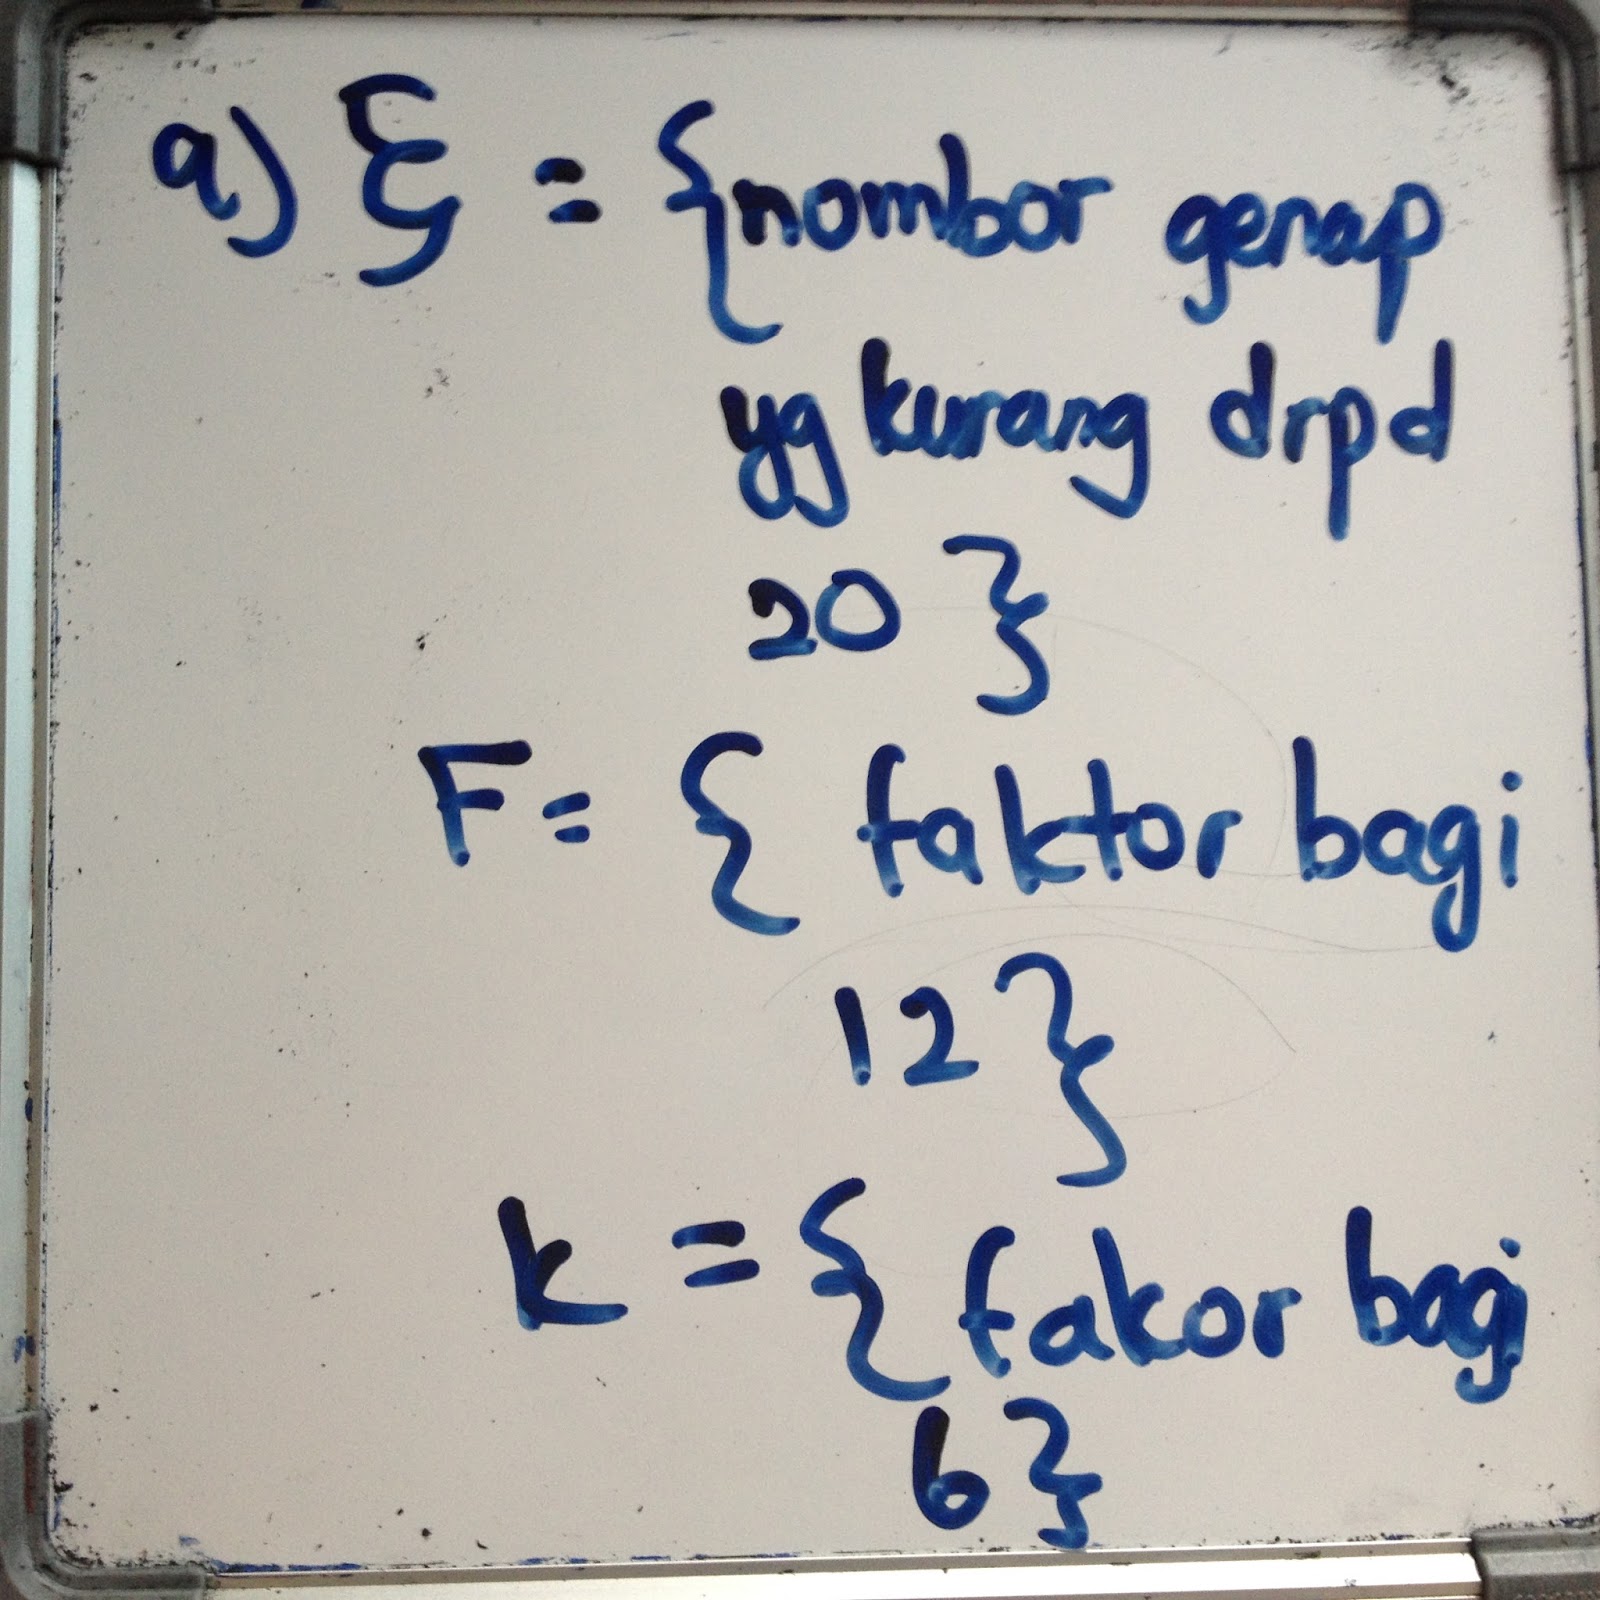 a) ξ = {nombor genap
yg kurang drpd
20 }
F = { faktor bagi
12 }
k = { fakor bagi
6 }